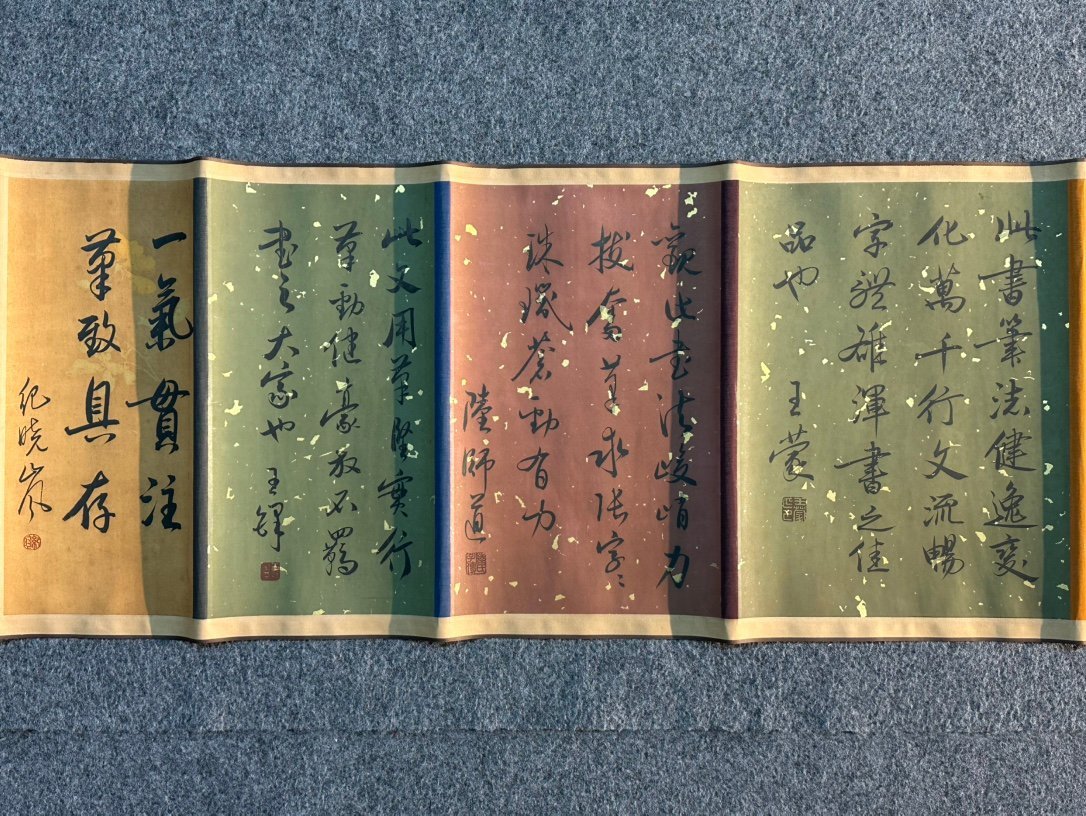 此書筆法健逸變
化萬千行文流暢
字體雄渾書之佳
品也
王蒙
觀此書法峻峭力
拔奮筆求張字々
珠璣蒼勁有力
陸師道
此文用筆堅實行
筆勁健豪放不羈
書之大家也
王鐸
一氣貫注
筆致具存
紀曉嵐